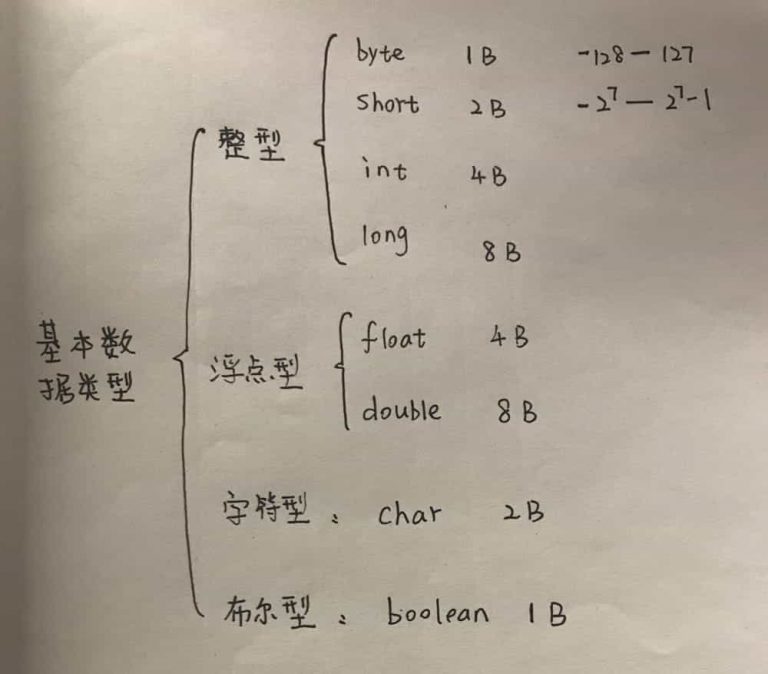 基本数
据类型
整型
byte 1B -128 — 127
short 2B -2⁷ — 2⁷-1
int 4B
long 8B
浮点型
float 4B
double 8B
字符型: char 2B
布尔型: boolean 1B